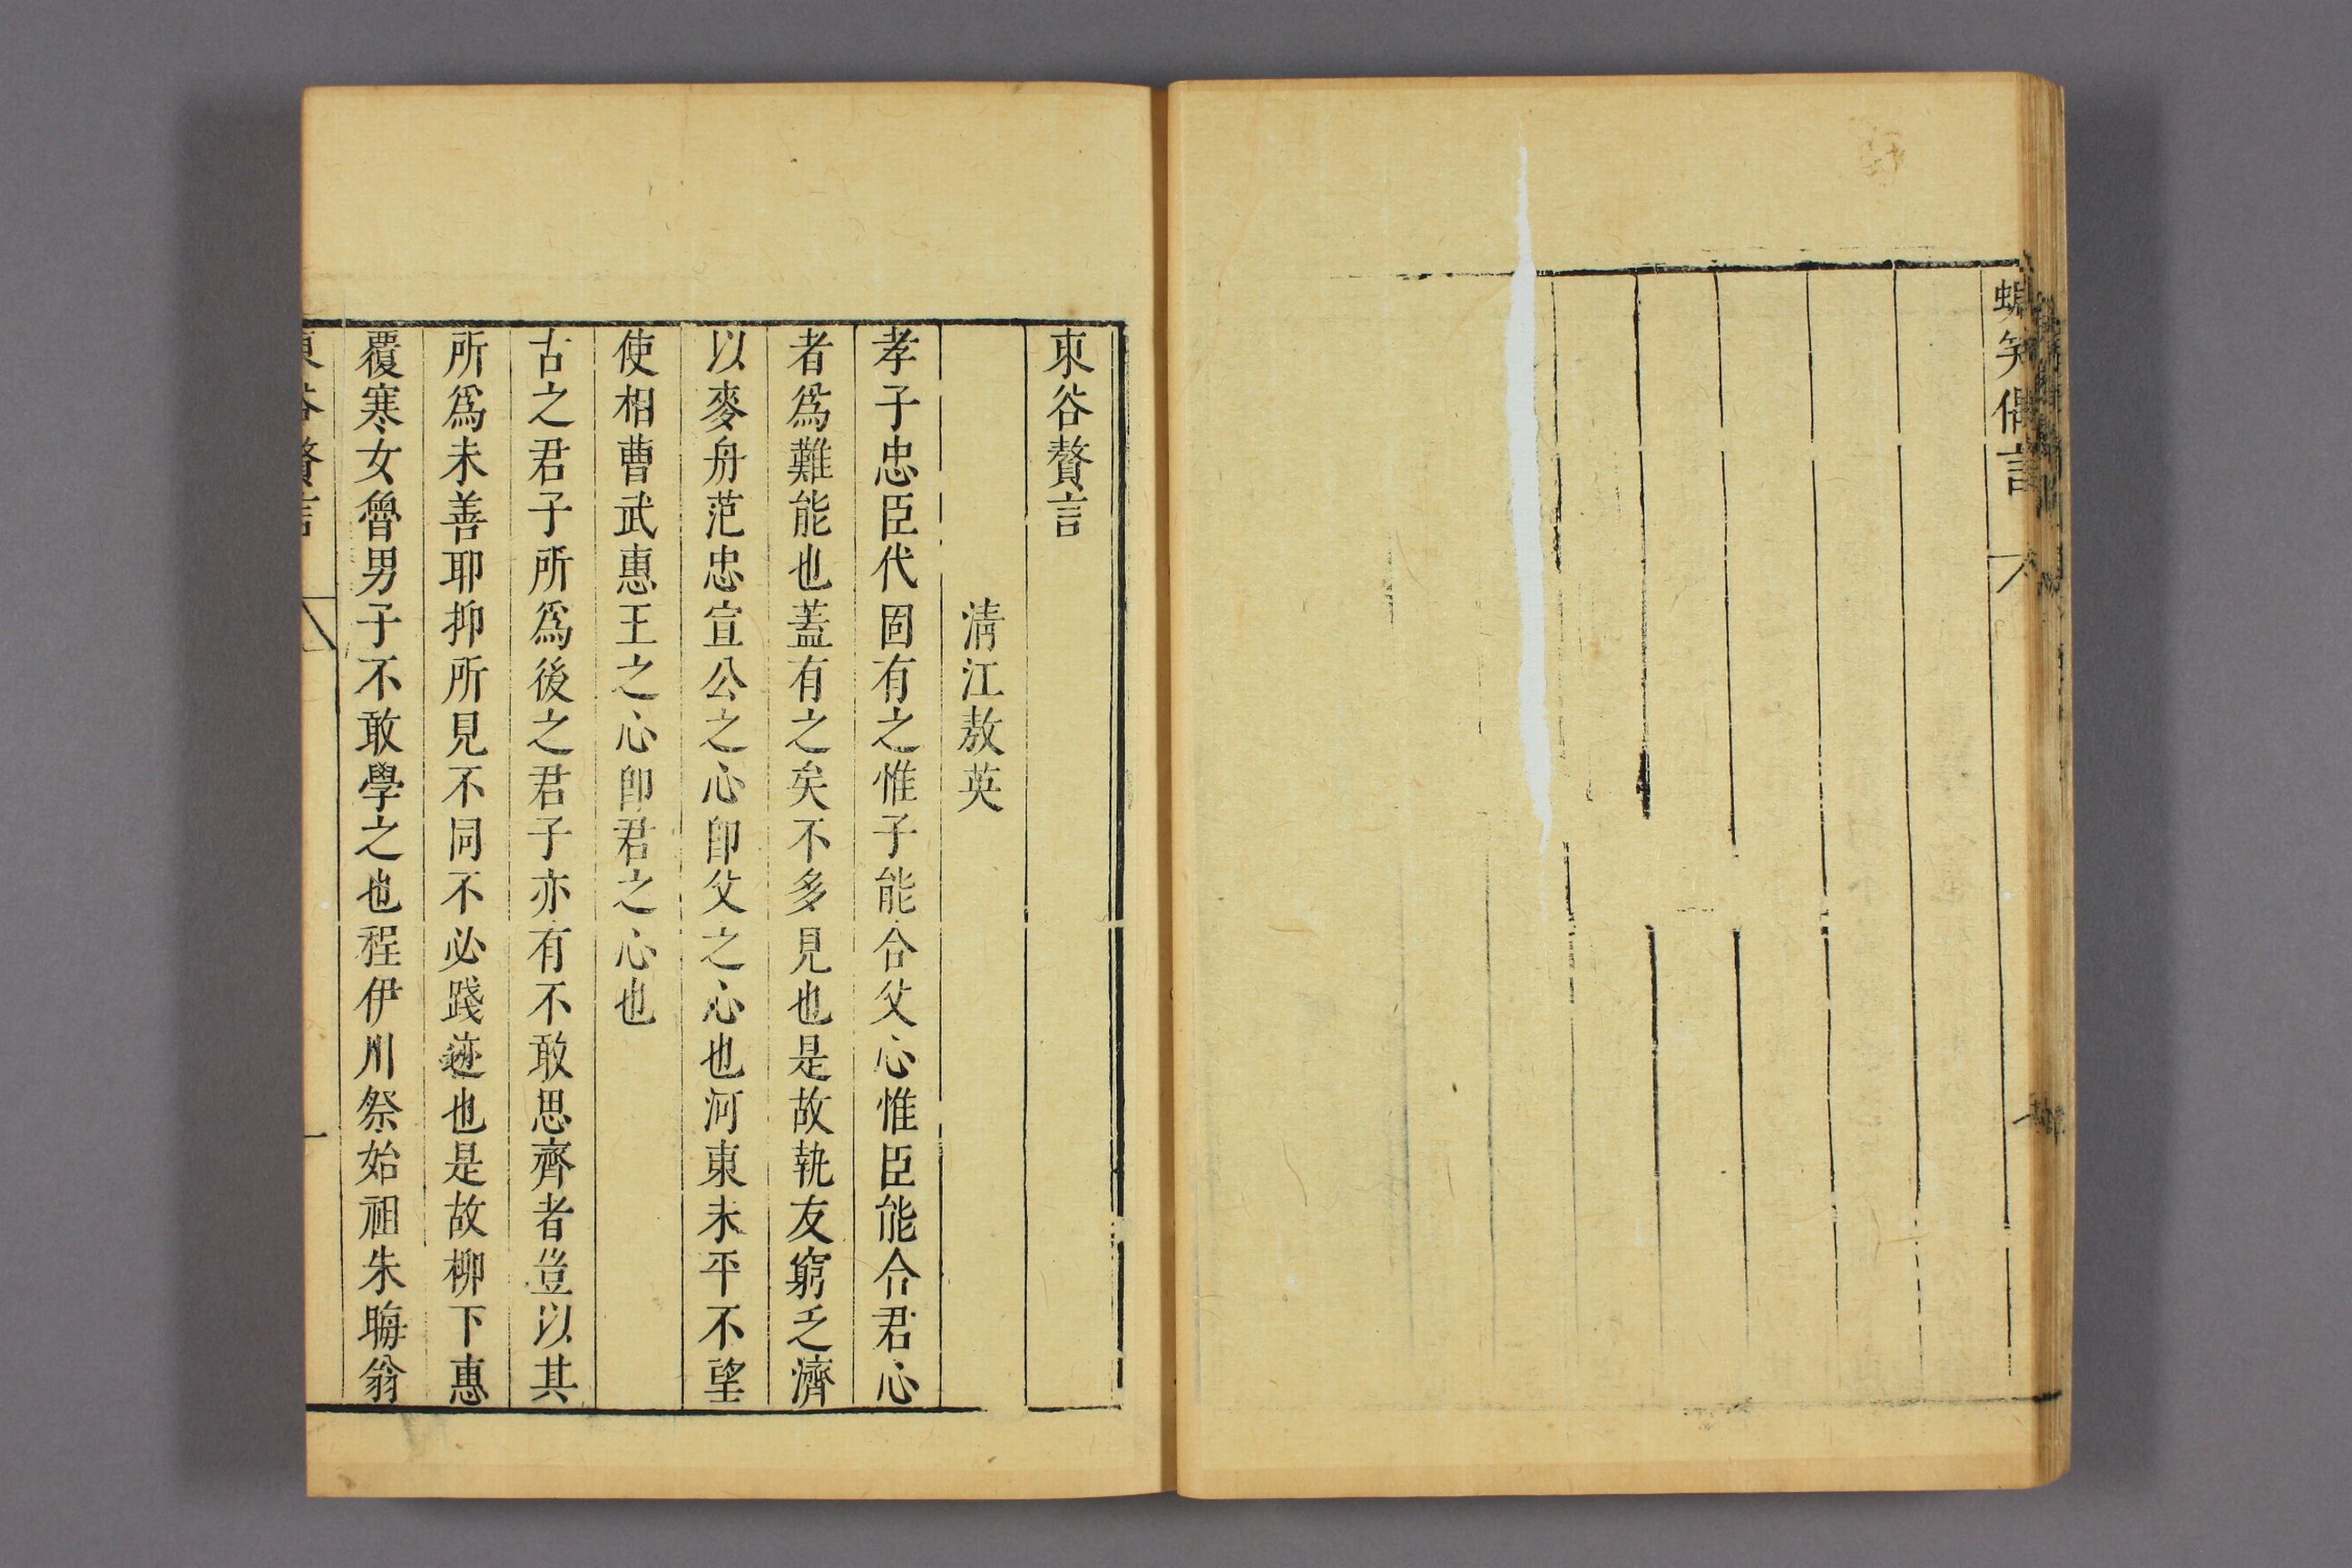 蜩笑偶言
東谷贅言
清江敖英
孝子忠臣代固有之惟子能合父心惟臣能合君心
者爲難能也蓋有之矣不多見也是故執友窮乏濟
以麥舟范忠宣公之心卽父之心也河東未平不望
使相曹武惠王之心卽君之心也
古之君子所爲後之君子亦有不敢思齊者豈以其
所爲未善耶抑所見不同不必踐迹也是故柳下惠
覆寒女魯男子不敢學之也程伊川祭始祖朱晦翁
東谷贅言 一